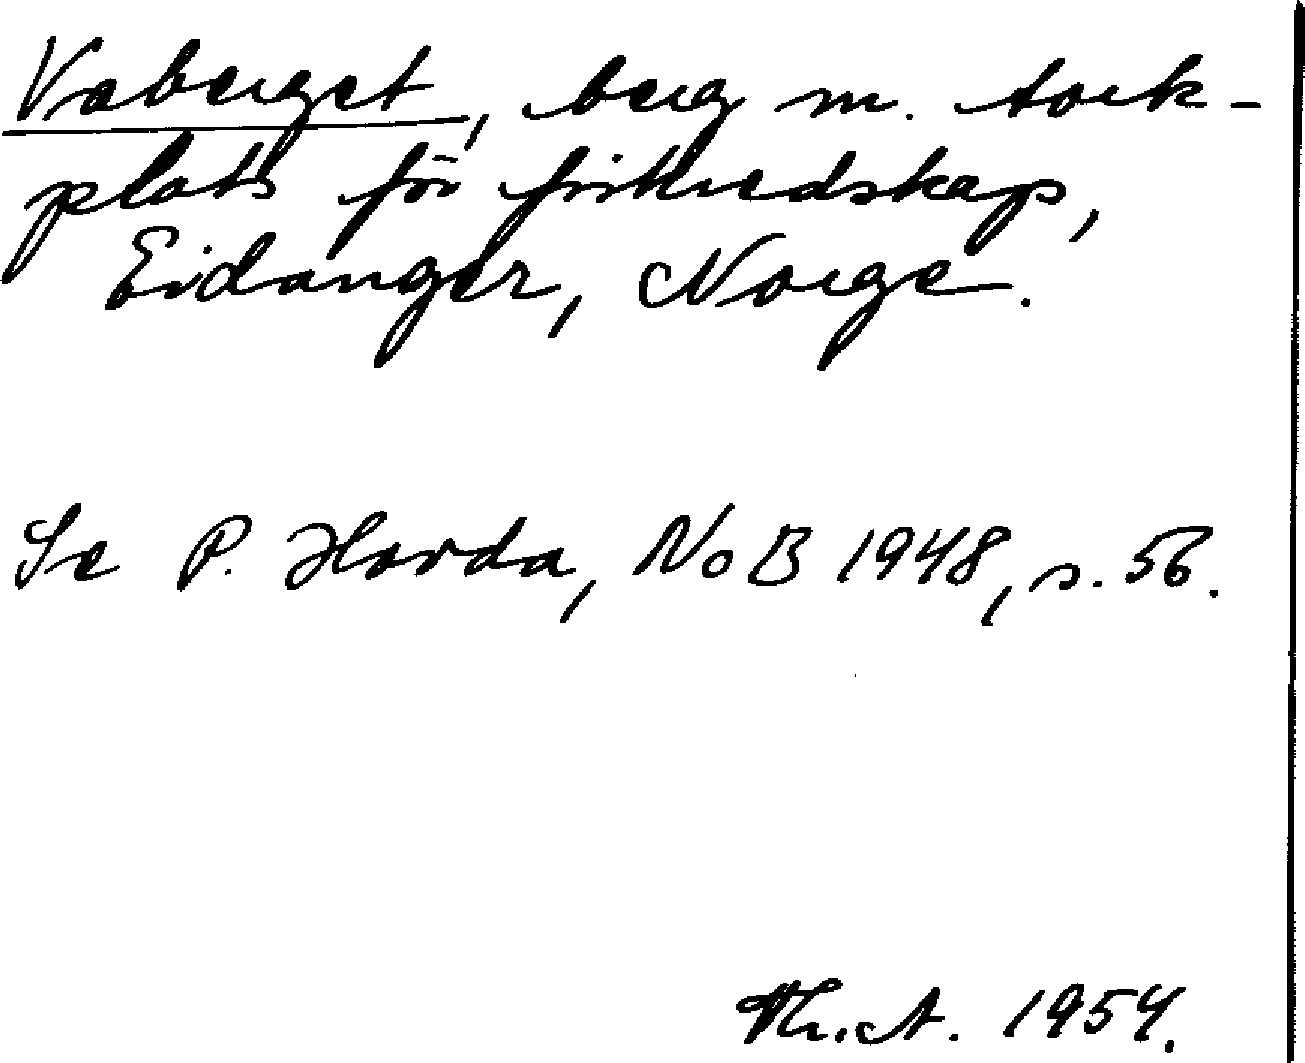 Vaberget, berg m. tork-
plats för fiskredskap,
Eidanger, Norge.
Se P. Hovda, NoB 1948, s. 56.
Th. A. 1954.